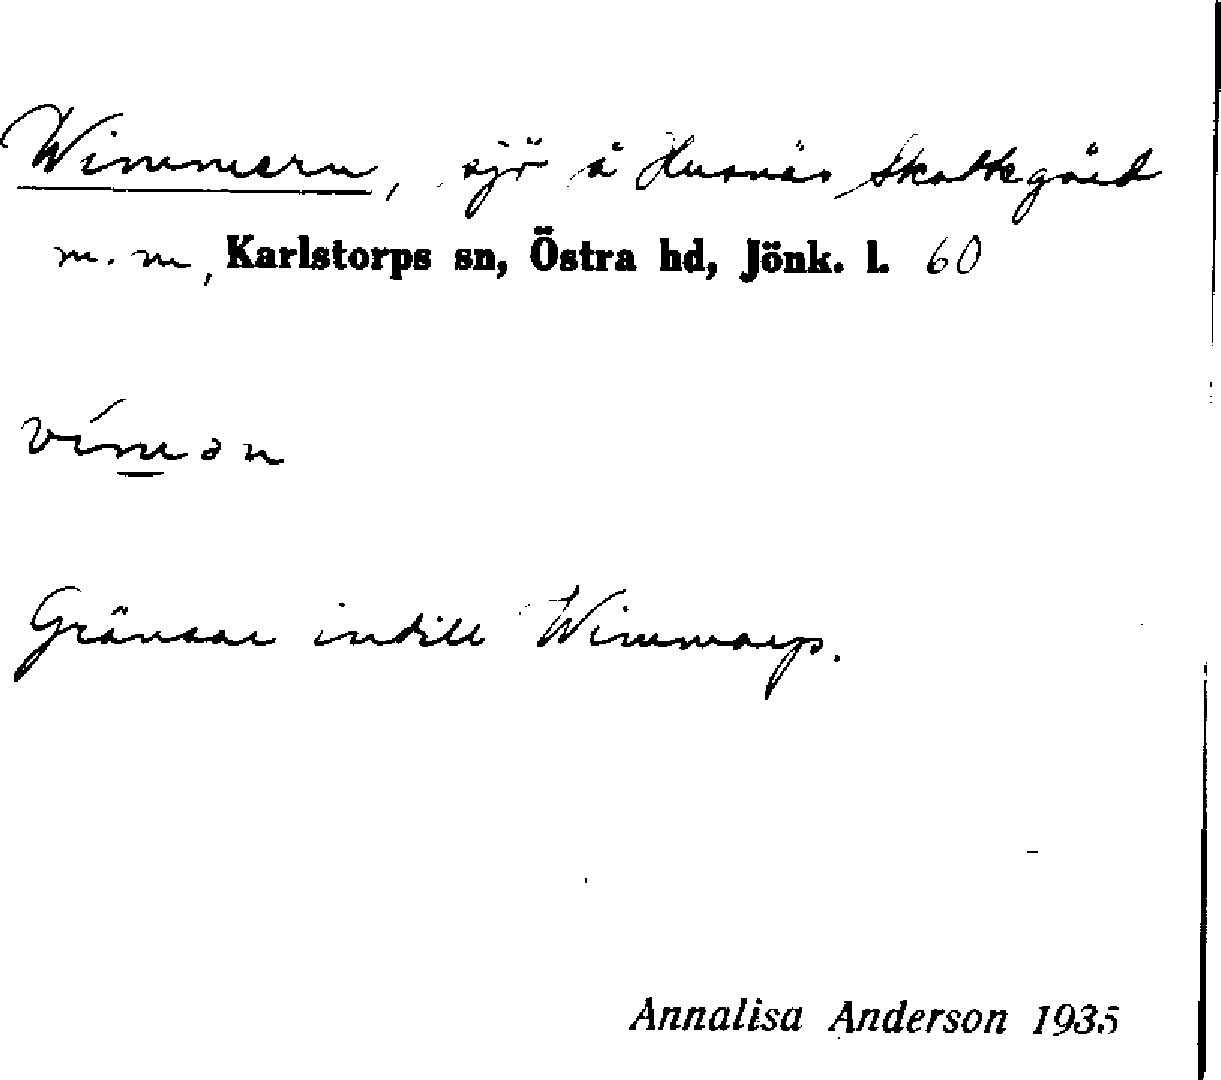 Wimmern, sjö å Husnäs Skattegård
m. m, Karlstorps sn, Östra hd, Jönk. l. 60
Gränsar intill Wimmarp.
Annalisa Anderson 1935